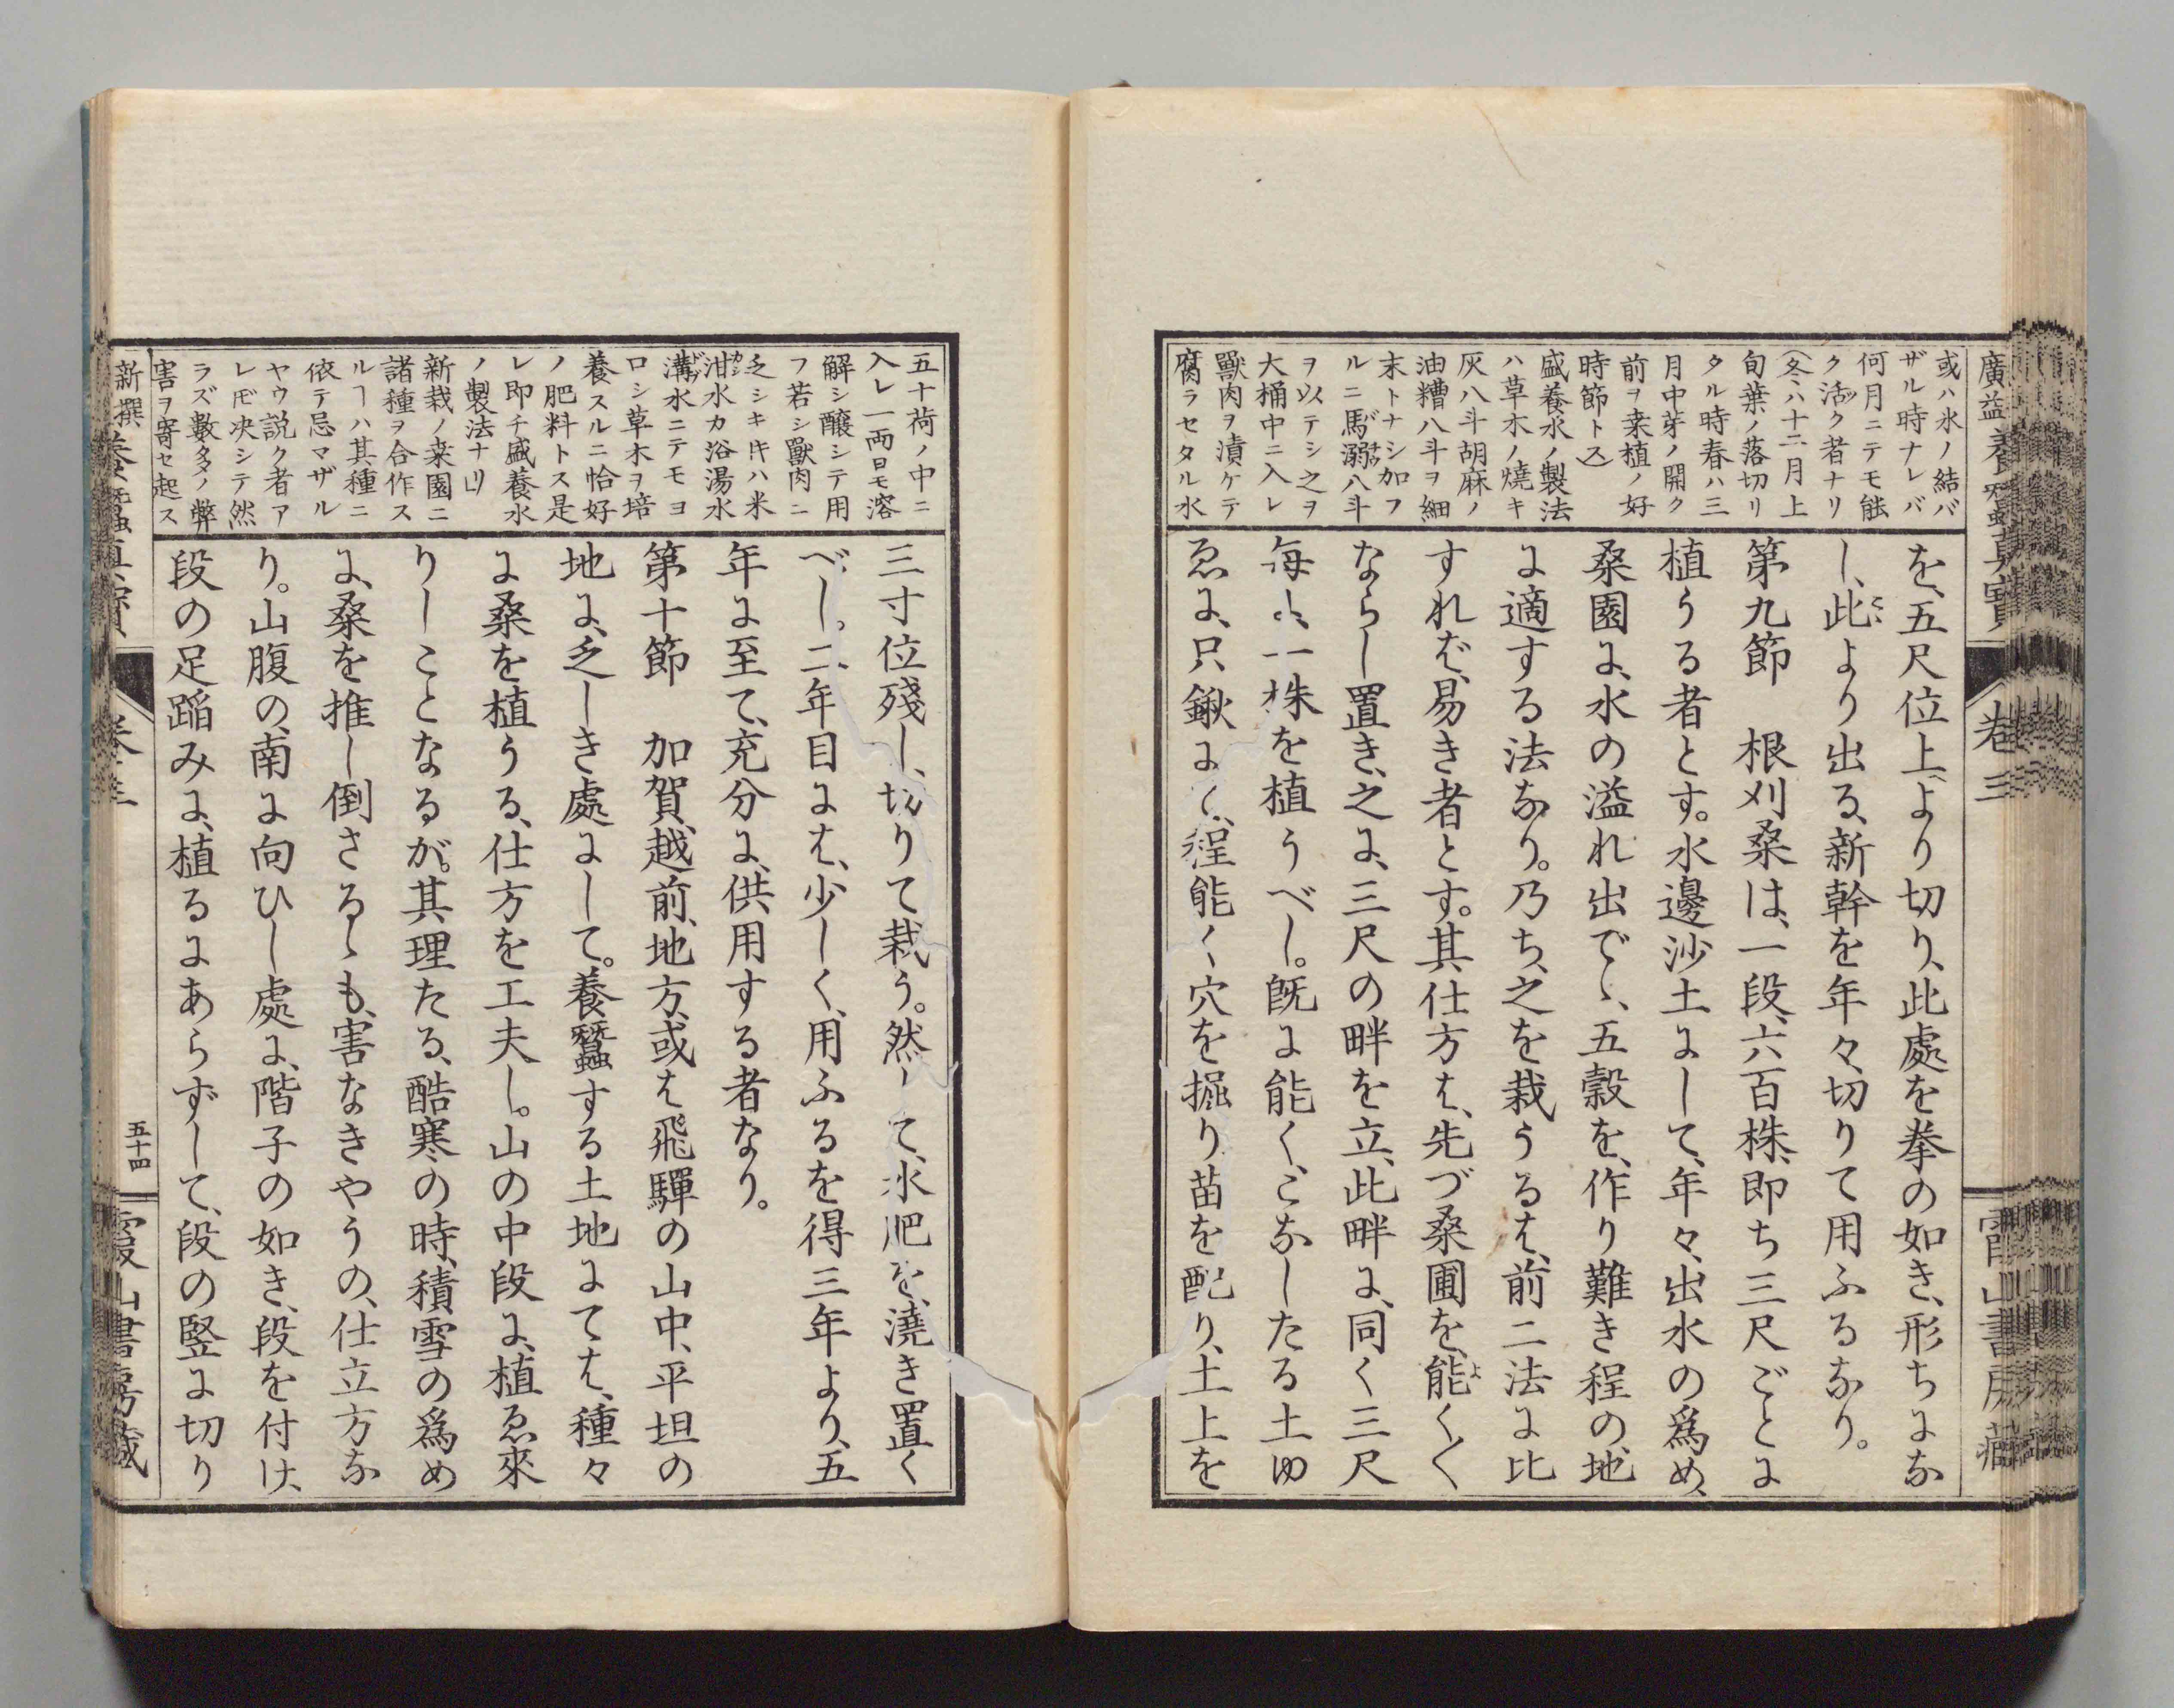 廣益養蠶真寶
巻三
霞山書房藏
或ハ氷ノ結バ
ザル時ナレバ
何月ニテモ能
ク活ク者ナリ
(冬ハ十二月上
旬葉ノ落切リ
タル時春ハ三
月中芽ノ開ク
前ヲ桒植ノ好
時節トス)
盛養水ノ製法
ハ草木ノ燒キ
灰八斗胡麻ノ
油糟八斗ヲ細
末トナシ加フ
ルニ馬溺八斗
ヲ以テシ之ヲ
大桶中ニ入レ
獸肉ヲ漬ケテ
腐ラセタル水
を、五尺位上より切り、此處を拳の如き、形ちにな
し、此より出る、新幹を年々、切りて用ふるなり。
第九節 根刈桑は、一段、六百株、即ち三尺ごとに
植うる者とす。水邊沙土にして、年々、出水の爲め、
桑園に、水の溢れ出でゝ、五穀を、作り難き程の地
に適する法なり。乃ち、之を栽うるは、前二法に比
すれば、易き者とす。其仕方は、先づ桑圃を、能く〱
ならし置き、之に、三尺の畔を立、此畔に、同く三尺
毎に、一株を植うべし。既に能く、こなしたる土ゆ
ゑに、只鍬にて、程能く穴を掘り苗を配り、土上を
五十荷ノ中ニ
入レ一両日モ溶
解シ釀シテ用
フ若シ獸肉ニ
乏シキ𪜈ハ米
泔水カ浴湯水
溝水ニテモヨ
ロシ草木ヲ培
養スルニ恰好
ノ肥料トス是
レ即チ盛養水
ノ製法ナリ」
新栽ノ桒園ニ
諸種ヲ合作ス
ルヿハ其種ニ
依テ忌マザル
ヤウ説ク者ア
レ𪜈决シテ然
ラズ數多ノ弊
害ヲ寄セ起ス
三寸位殘し、切りて栽う。然して、水肥を、澆き置く
べし。二年目には、少しく、用ふるを得三年より、五
年に至て、充分に、供用する者なり。
第十節 加賀、越前、地方、或は飛驒の山中、平坦の
地に、乏しき處にして。養蠶する土地にては、種々
に桑を植うる、仕方を工夫し。山の中段に、植ゑ來
りしことなるが。其理たる、酷寒の時、積雪の爲め
に、桑を推し倒さるゝも、害なきやうの、仕立方な
り。山腹の、南に向ひし處に、階子の如き、段を付け、
段の足蹈みに、植るにあらずして、段の竪に切り
新撰養蠶真寶
巻三
五十四
霞山書房藏